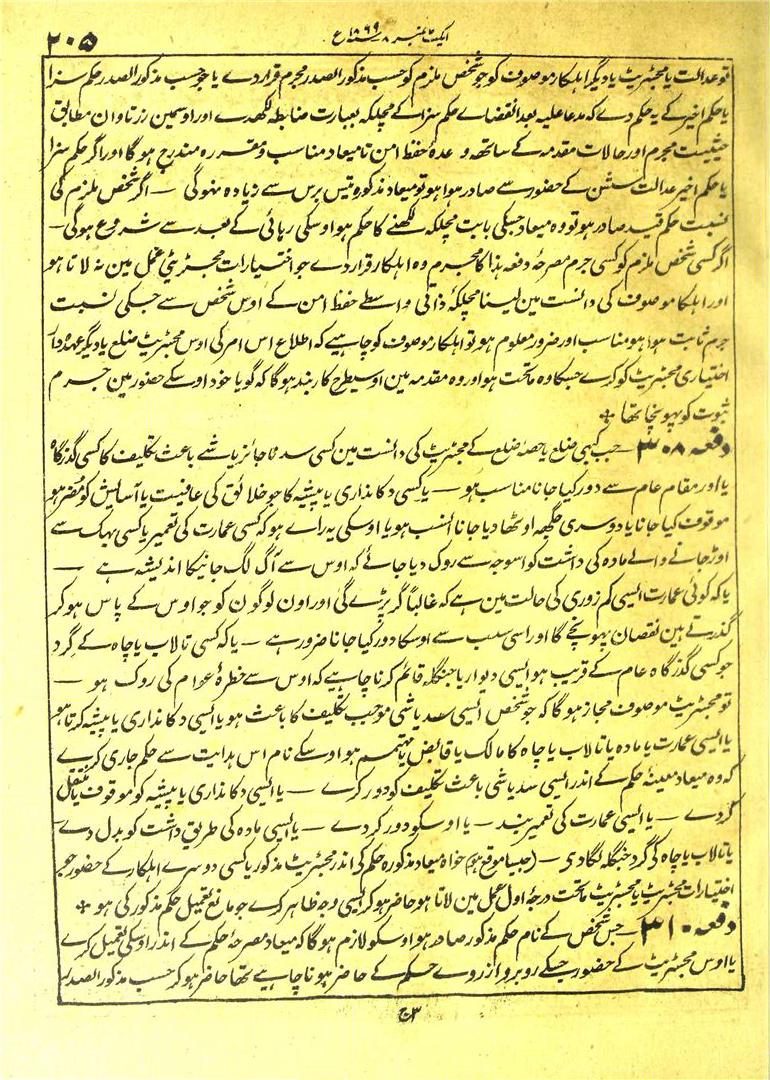 ایکٹ نمبر ۸ سنہ ۱۸۶۹ ع
۲۰۵
تو عدالت یا مجسٹریٹ یا دیگر اہلکار موصوف کو جو شخص ملزم کو حسب مذکور الصدر مجرم قرار دے یا جو حسب مذکور الصدر حکم سزا
یا حکم اخیر کے یہ حکم دے کہ مدعا علیہ بعد انقضاے حکم سزا کے مچلکہ بعبارت ضابطہ لکھدے اور اوسمین زر تاوان مطابق
حیثیت مجرم اور حالات مقدمہ کے ساتھہ وعدہ حفظ امن تا میعاد مناسب و مقررہ مندرج ہو گا اور اگر حکم سزا
یا حکم اخیر عدالت سشن کے حضور سے صادر ہوا ہو تو میعاد مذکورہ تین برس سے زیادہ نہوگی — اگر شخص ملزم کی
نسبت حکم قید صادر ہو تو وہ میعاد جسکی بابت مچلکہ لکھنے کا حکم ہو اوسکی رہائی کے بعد سے شروع ہو گی —
اگر کسی شخص ملزم کو کسی جرم مصرحہ دفعہ ہذا کا مجرم وہ اہلکار قرار دے جو اختیارات مجسٹریٹی عمل مین نہ لاتا ہو
اور اہلکار موصوف کی دانست مین لینا مچلکہ ذاتی واسطے حفظ امن کے اوس شخص سے جسکی نسبت
جرم ثابت ہوا ہو مناسب اور ضرور معلوم ہو تو اہلکار موصوف کو چاہیے کہ اطلاع اس امر کی اوس مجسٹریٹ ضلع یا دیگر عہدہ دار
اختیاری مجسٹریٹ کو کرے جسکا وہ ماتحت ہو اور وہ مقدمہ مین اوسیطرح کاربند ہو گا کہ گویا خود اوسکے حضور مین جرم
ثبوت کو پہونچا تھا ✤
دفعہ ۳۰۸ — جب کبھی ضلع یا حصہ ضلع کے مجسٹریٹ کی دانست مین کسی سد ناجائز یا شے باعث تکلیف کا کسی گذرگاہ
یا اور مقام عام سے دور کیا جانا مناسب ہو — یا کسی دکانداری یا پیشہ کا جو خلائق کی عافیت یا آسایش کو مضر ہو
موقوف کیا جانا یا دوسری جگہہ اوٹھا دیا جانا انسب ہو یا اوسکی یہ راے ہو کہ کسی عمارت کی تعمیر یا کسی بھک سے
اوڑ جانے والے مادہ کی داشت کو اسوجہ سے روک دیا جائے کہ اوس سے آگ لگ جانیکا اندیشہ ہے —
یا کہ کوئی عمارت ایسی کمزوری کی حالت مین ہے کہ غالباً گر پڑے گی اور اون لوگون کو جو اوس کے پاس ہو کر
گذرتے ہین نقصان پہونچے گا اور اسی سبب سے اوسکا دور کیا جانا ضرور ہے — یا کہ کسی تالاب یا چاہ کے گرد
جو کسی گذرگاہ عام کے قریب ہو ایسی دیوار یا جنگلہ قائم کرنا چاہیے کہ اوس سے خطرہ عوام کی روک ہو —
تو مجسٹریٹ موصوف مجاز ہو گا کہ جو شخص ایسی سد یا شی موجب تکلیف کا باعث ہو یا ایسی دکانداری یا پیشہ کرتا ہو
یا ایسی عمارت یا مادہ یا تالاب یا چاہ کا مالک یا قابض یا مہتمم ہو اوسکے نام اس ہدایت سے حکم جاری کرے
کہ وہ میعاد معینہ حکم کے اندر ایسی سد یا شی باعث تکلیف کو دور کرے — یا ایسی دکانداری یا پیشہ کو موقوف یا منتقل
کردے — یا ایسی عمارت کی تعمیر بند — یا اوسکو دور کردے — یا ایسی مادہ کی طریق داشت کو بدل دے
یا تالاب یا چاہ کی گرد جنگلہ لگادی — (جیسا موقع ہو) خواہ میعاد مذکورہ حکم کی اندر مجسٹریٹ مذکور یا کسی دوسرے اہلکار کے حضور جو
اختیارات مجسٹریٹ یا مجسٹریٹ ماتحت درجہ اول عمل مین لاتا ہو حاضر ہو کر ایسی وجہ ظاہر کرے جو مانع تعمیل حکم مذکور کی ہو ✤
دفعہ ۳۱۰ — جس شخص کے نام حکم مذکور صادر ہو اوسکو لازم ہو گا کہ میعاد مصرحہ حکم کے اندر اوسکی تعمیل کرے
یا اوس مجسٹریٹ کے حضور جسکے روبرو از روے حکم کے حاضر ہونا چاہیے تھا حاضر ہو کر حسب مذکور الصدر
ج۳